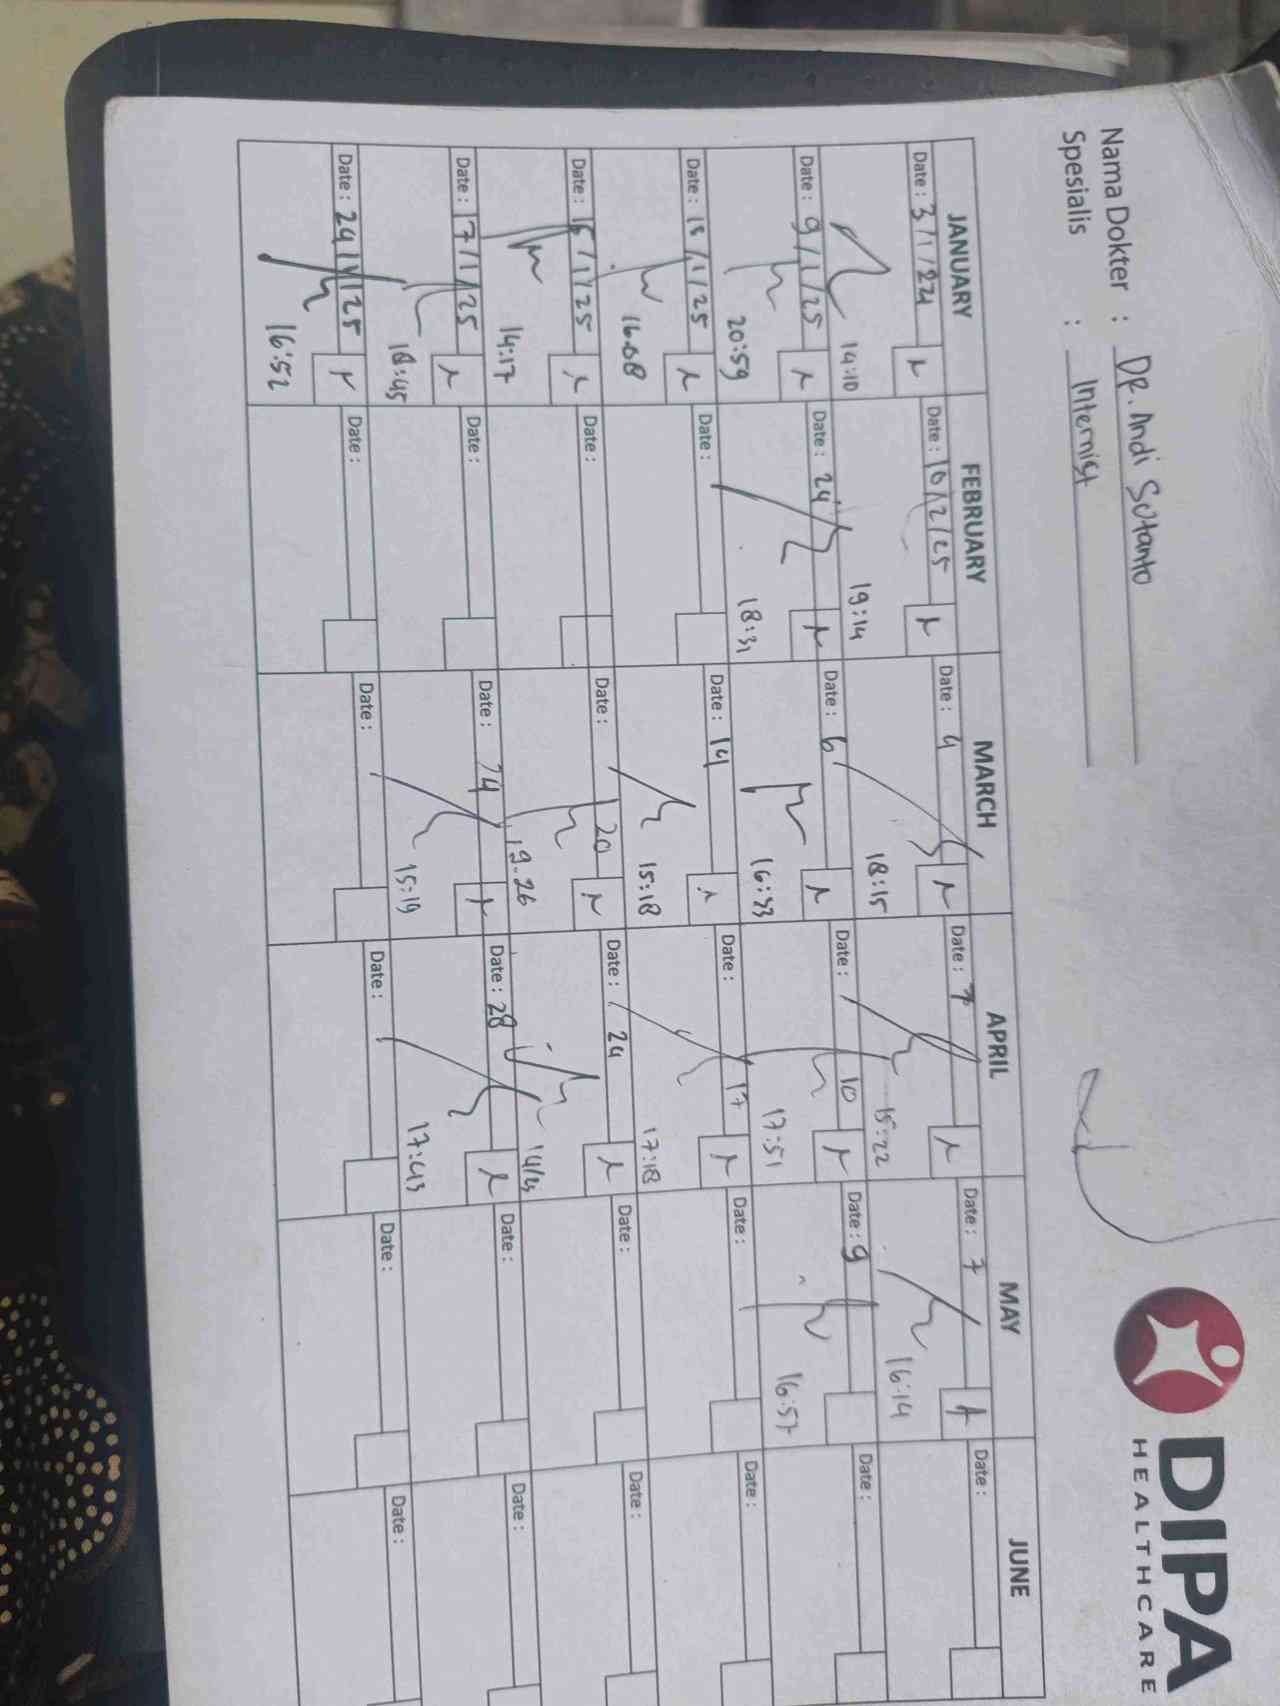 DIPA
HEALTHCARE
Nama Dokter : DR. Andi Sutanto
Spesialis : Internist
JANUARY FEBRUARY MARCH APRIL MAY JUNE
Date : 3/1/24 Date : 10/2/25 Date : 4 Date : 7 Date : 7 Date :
14:10 19:14 18:15 15:22 16:14
Date : 9/1/25 Date : 24 Date : 6 Date : 10 Date : 9 Date :
20:59 18:31 16:33 17:51 16:57
Date : 13/1/25 Date : Date : 14 Date : 17 Date : Date :
16.08 15:18 17:18
Date : 15/1/25 Date : Date : 20 Date : 24 Date : Date :
14:17 19.26
Date : 17/1/25 Date : Date : 24 Date : 28 Date : Date :
18:45 15:19 17:43
Date : 24/1/25 Date : Date : Date : Date : Date :
16:52